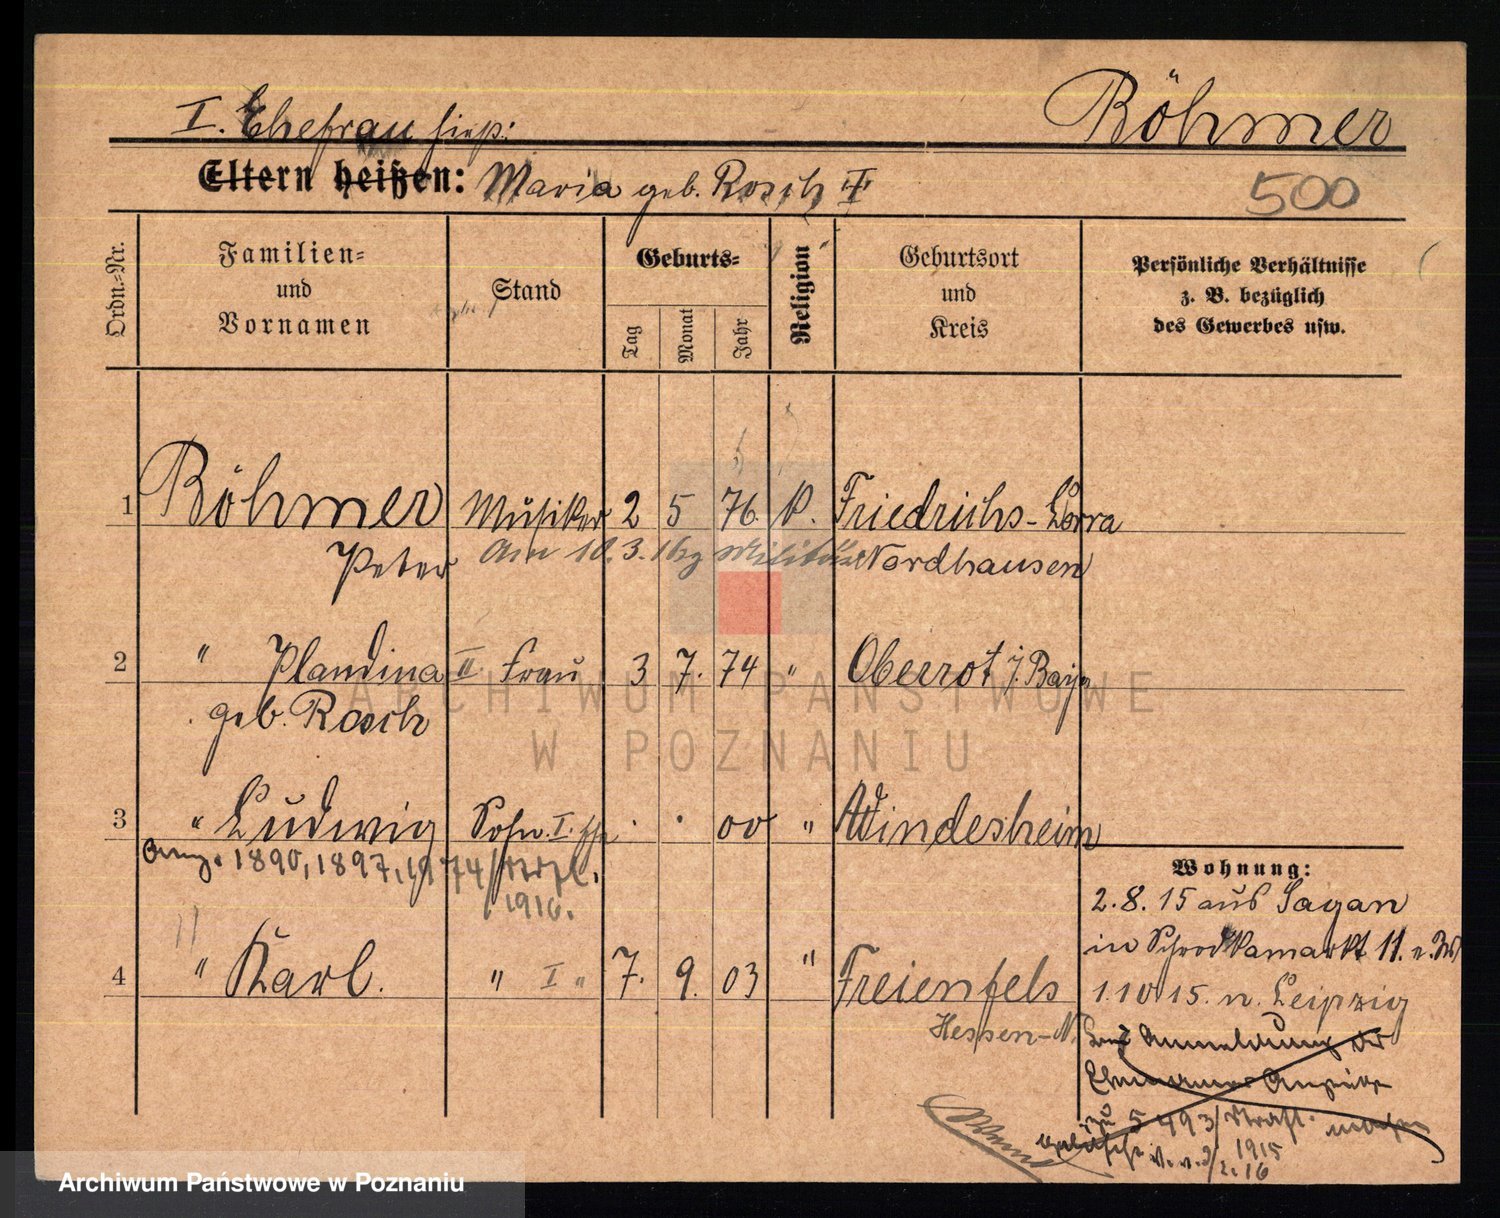 Böhmer
I. Ehefrau hieß:
Eltern heißen: Maria geb. Rosch II
500
Ordn.-Nr.
Familien-
und
Vornamen
Stand
Geburts-
Tag
Monat
Jahr
Religion
Geburtsort
und
Kreis
Persönliche Verhältnisse
z. B. bezüglich
des Gewerbes usw.
1 Böhmer Musiker 2 5 76. k. Friedrichs-Lorra
Peter Am 10.3.16 zg Militär Nordhausen
2 " Plandina II Frau 3 7. 74 " Oberrot i. Bay
geb. Rosch
3 " Ludwig Sohn I. 00 " Windesheim
1890, 1897, 1974
1916.
Wohnung:
2.8.15 aus Sagan
in Schrodkamarkt 11.
4 " Karl. " I " 7. 9. 03 " Freienfels
1.10.15. n. Leipzig
Hessen-N.
Anmeldung der
zu 5493
1915
16
ARCHIWUM PAŃSTWOWE
W POZNANIU
Archiwum Państwowe w Poznaniu